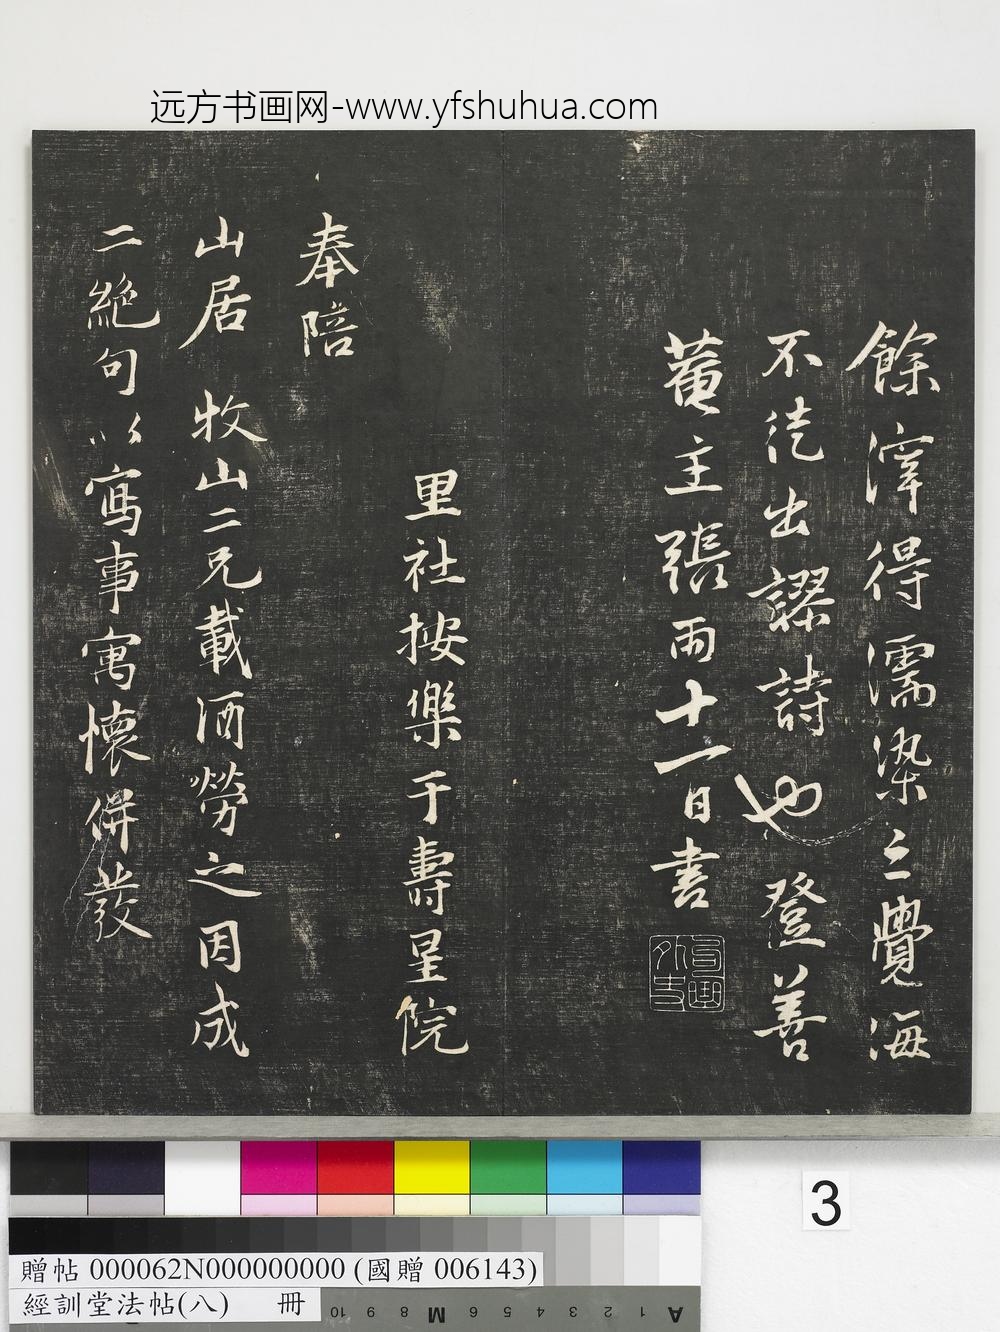 远方书画网-www.yfshuhua.com
餘滓得濡染之覺海
不徒出謬詩也登善
菴主張雨十一日書
里社按樂于壽星院
奉陪
山居 牧山二兄載酒勞之因成
二絶句以寫事寓懷併發
3
贈帖 000062N000000000 (國贈 006143)
經訓堂法帖(八) 冊
10 9 8 M 6 5 4 3 2 1 A